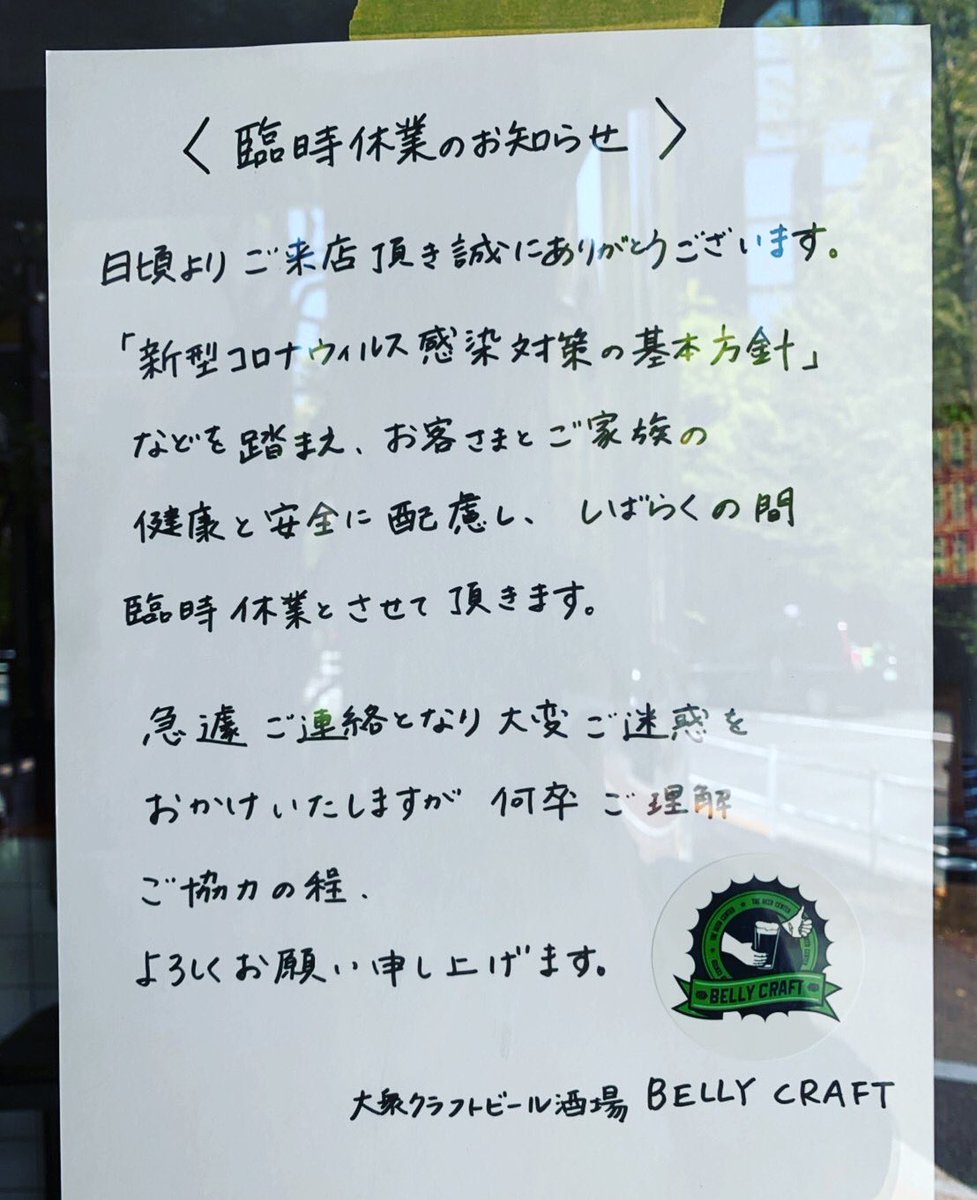 〈 臨時休業のお知らせ 〉
日頃よりご来店頂き誠にありがとうございます。
「新型コロナウィルス感染対策の基本方針」
などを踏まえ、お客さまとご家族の
健康と安全に配慮し、しばらくの間
臨時休業とさせて頂きます。
急遽ご連絡となり大変ご迷惑を
おかけいたしますが 何卒ご理解
ご協力の程、
よろしくお願い申し上げます。
THE BEER CENTER
BELLY CRAFT
大衆クラフトビール酒場 BELLY CRAFT